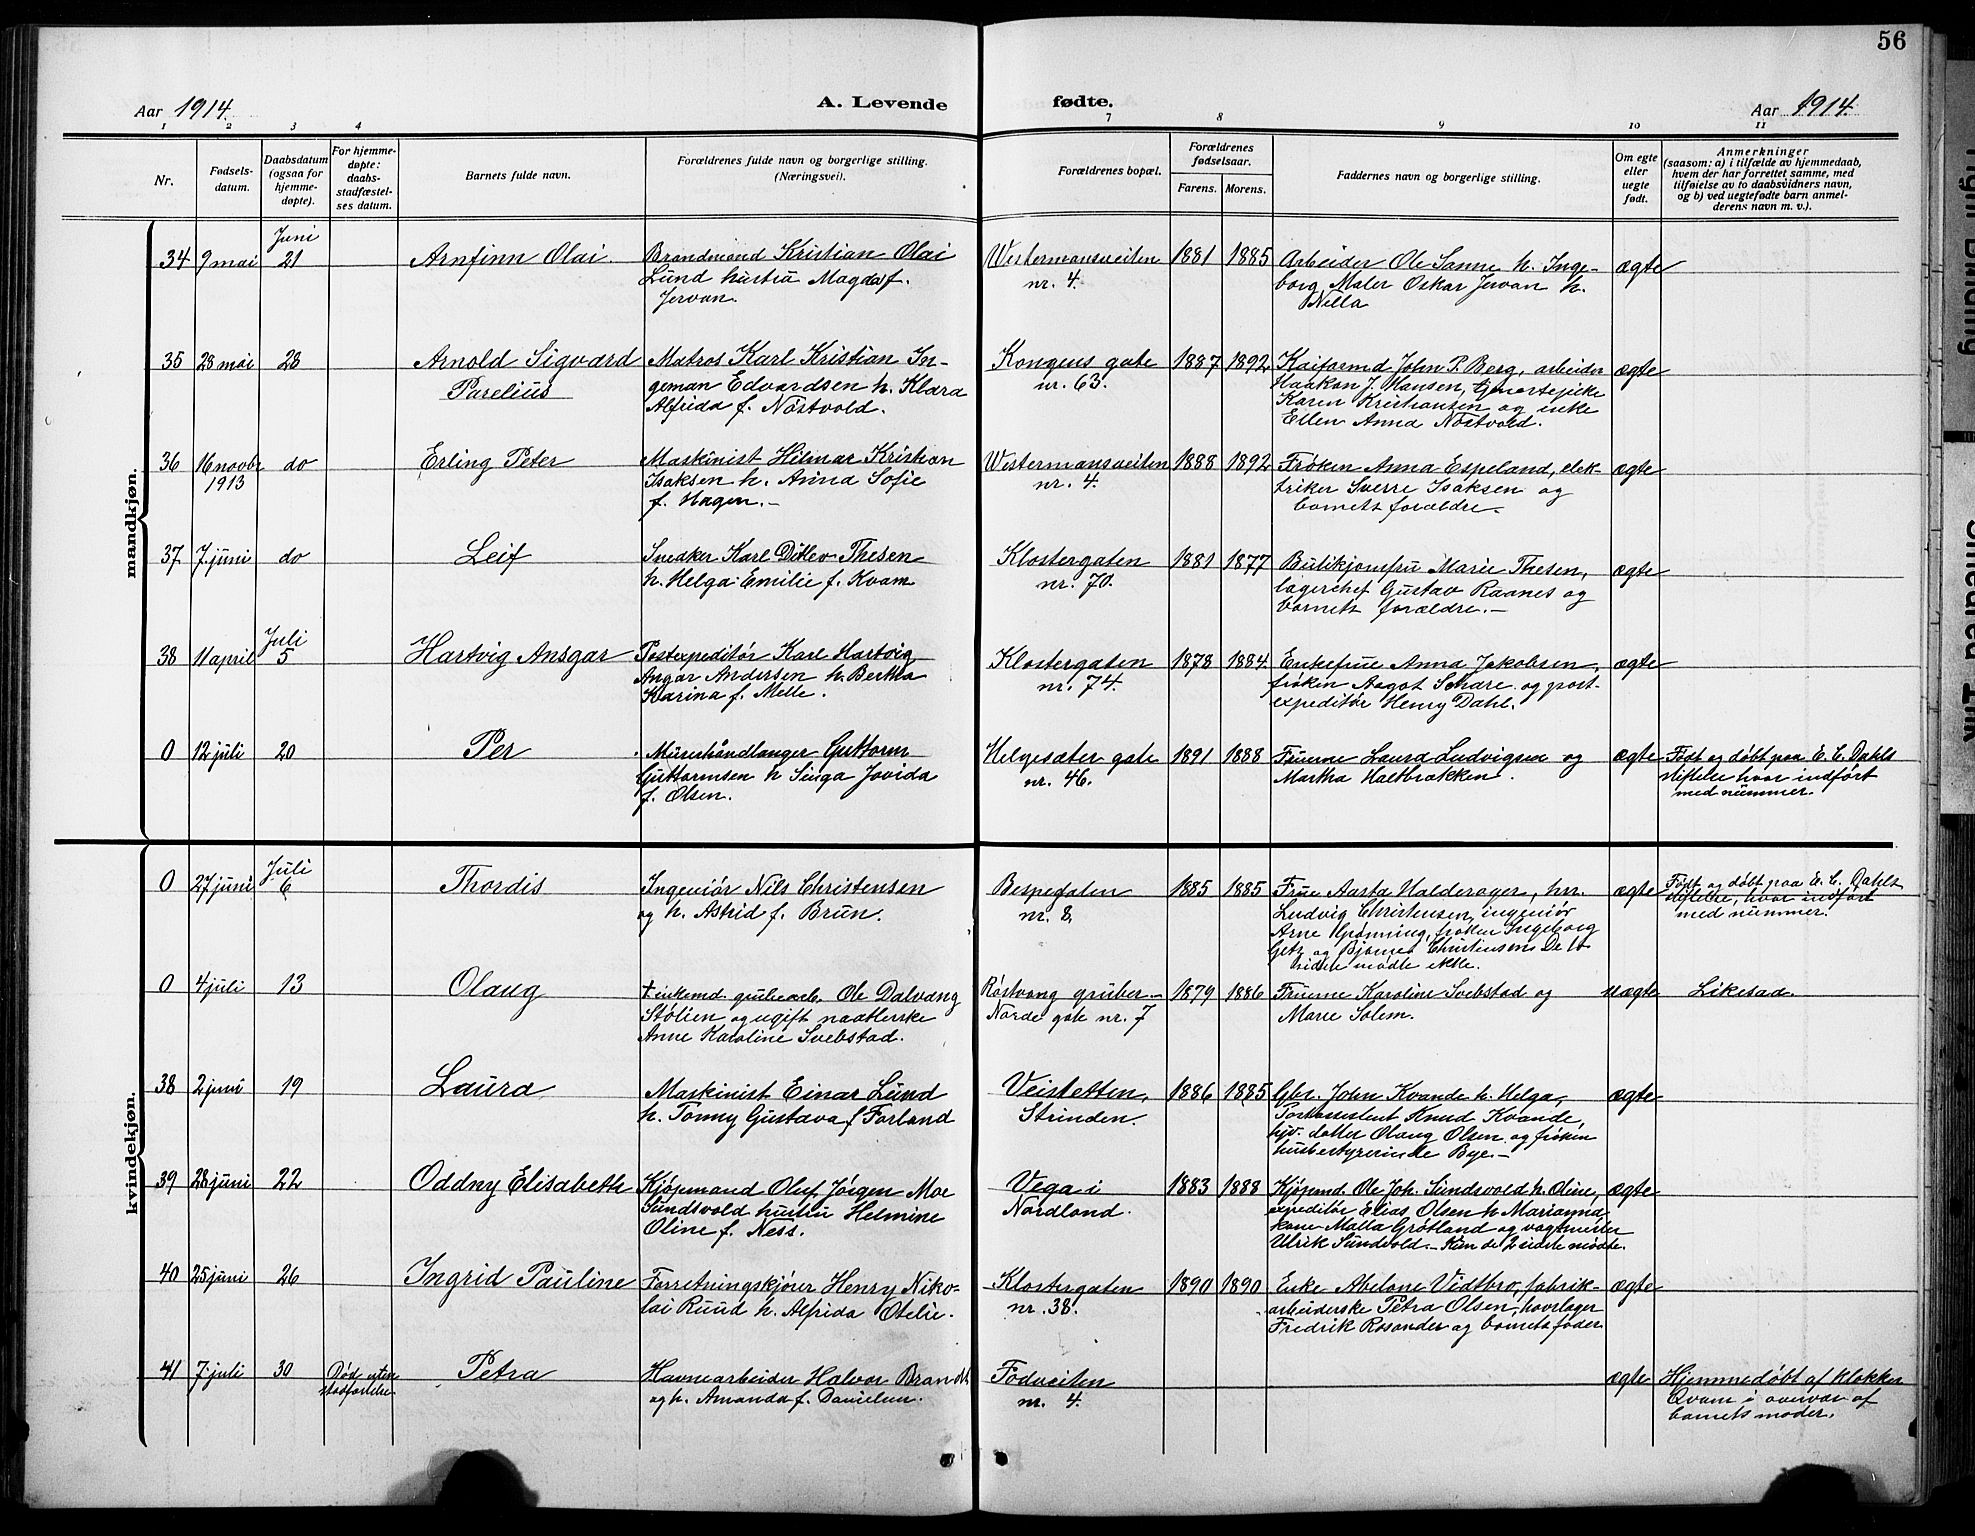 56
Aar 1914.
A. Levende
fødte.
Aar 1914.
1 2 3 4 7 8 9 10 11
Nr.
Fødsels-
datum.
Daabsdatum
(ogsaa for
hjemme-
døpte).
For hjemme-
døpte:
daabs-
stadfæstel-
ses datum.
Barnets fulde navn.
Forældrenes fulde navn og borgerlige stilling.
(Næringsvei).
Forældrenes bopæl.
Forældrenes
fødselsaar.
Farens. Morens.
Faddernes navn og borgerlige stilling.
Om egte
eller
uegte
født.
Anmerkninger
(saasom: a) i tilfælde av hjemmedaab,
hvem der har forrettet samme, med
tilføielse av to daabsvidners navn,
og b) ved uegtefødte barn anmel-
derens navn m. v.).
mandkjøn.
34 9 mai Juni 21 Arnfinn Olai
Brandmand Kristian Olai
Lund hustru Magda f.
Jervan.
Westermansveiten
nr. 4.
1881 1885
Arbeider Ole Sanne h. Inge-
borg, Maler Oskar Jervan h.
Nilla
ægte
35 28 mai 28 Arnold Sigvard
Parelius
Matros Karl Kristian In-
geman Edvardsen h. Klara
Alfrida f. Nøstvold.
Kongens gate
nr. 63.
1887 1892
Kaiformd John P. Berg, arbeider
Haakon J. Hansen, tjenestepike
Karen Kristiansen og enke
Ellen Anna Nøstvold.
ægte
36 16 novbr 1913 do Erling Peter
Maskinist Hilmar Kristian
Isaksen h. Anna Sofie
f. Hagen.-
Westermansveiten
nr. 4.
1888 1892
Frøken Anna Espeland, elek-
triker Sverre Isaksen og
barnets forældre.
ægte
37 7 juni do Leif
Snedker Karl Ditlev Thesen
h. Helga Emilie f. Kvam
Klostergaten
nr. 70.
1881 1877
Butikjomfru Marie Thesen,
lagerchef Gustav Raanes og
barnets forældre.-
ægte
38 11 april Juli 5 Hartvig Ansgar
Postexpeditør Karl Hartvig
Ansgar Andersen h. Bertha
Karina f. Melle.
Klostergaten
nr. 74.
1878 1884
Enkefrue Anna Jakobsen,
frøken Aagot Schare og post-
expeditør Henry Dahl.
ægte
0 12 juli 20 Per
Murerhåndlanger Guttorm
Guttormsen h Singa Jovida
f. Olsen.
Helgesæter gate
nr. 46.
1891 1888
Fruerne Laura Ludvigsen og
Martha Haltbrækken.
ægte
Født og døbt paa E. C. Dahls
stiftelse hvor indført
med nummer.
kvindekjøn.
0 27 juni Juli 6 Thordis
Ingeniør Nils Christensen
og h. Astrid f. Brun.
Bispegaten
nr. 8.
1885 1885
Frue Aasta Halderager, hrr.
Ludvig Christensen, ingeniør
Arne Grønning, frøken Ingeborg
Getz og Bjarne Christensen. De to
sidste mødte ikke.
ægte
Født og døbt paa E. C. Dahls
stiftelse, hvor indført
med nummer.
0 4 juli 13 Olaug
enkemd. grubearb. Ole Dalvang
Stølien og ugift naatlerske
Anne Karoline Svebstad.
Røstvang gruber-
Nordre gate nr. 7
1879 1886
Fruerne Karoline Svebstad og
Marie Solem.
uægte
Likesaa.
38 2 juni 19 Laura
Maskinist Einar Lund
h. Tonny Gustava f Forland
Veisletten,
Strinden.
1886 1885
Gbr. John Kvande h. Helga,
Postassistent Knud Kvande,
hjv. datter Olaug Olsen og frøken
husbestyrerinde Bye.-
ægte
39 28 juni 22 Oddny Elisabeth
Kjøpmand Oluf Jørgen Moe
Sundsvold hustru Helmine
Oline f. Ness.
Vega i
Nordland.
1883 1888
Kjøpmd. Ole Joh. Sundsvold h. Oline,
expeditør Elias Olsen h Marianna
kone Malla Grøtland og vagtmester
Ulrik Sundsvold.- Kun de 2 sidste mødte.
ægte
40 25 juni 26 Ingrid Pauline
Forretningskjører Henry Niko-
lai Ruud h. Alfrida Otelie.
Klostergaten
nr. 38.
1890 1890
Enke Abelone Vidtbro, fabrik-
arbeiderske Petra Olsen, hovslager
Fredrik Rosander og barnets fader.
ægte
41 7 juli 30 Død uten
stadfæstelse Petra
Havnearbeider Halvor Brandt
og h. Amanda f. Danielsen.
Fodveiten
nr. 4.
ægte
Hjemmedøbt af klokker
Qvam i overvær af
barnets moder.